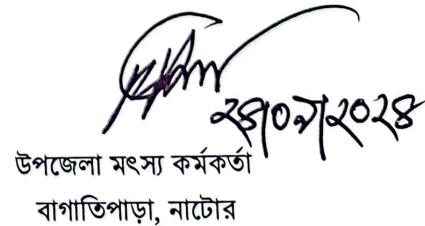 ২৪/০৯/২০২৪
উপজেলা মৎস্য কর্মকর্তা
বাগাতিপাড়া, নাটোর